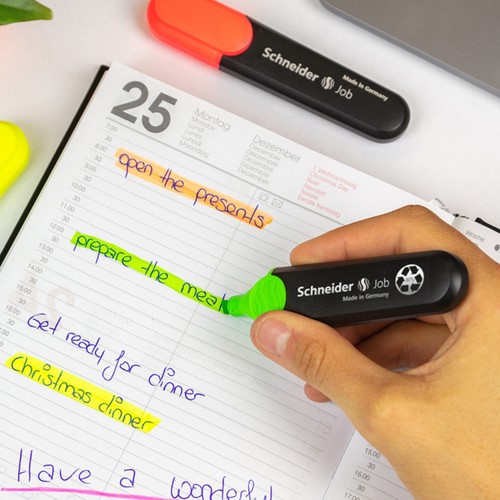 Schneider Job
Made in Germany
25
Montag
Monday
Lundi
Lunedì
Maandag
Dezember
December
1. Weihnachtstag
Christmas Day
Noël
Natale
Eerste Kerstdag
7.00
30
8.00
30
9.00
30
10.00
30
11.00
30
12.00
30
13.00
30
14.00
30
15.00
30
16.00
30
17.00
30
open the presents
prepare the meal
Schneider Job
Made in Germany
Get ready for dinner
Christmas dinner
Have a wonderful
Woche
15.00
30
16.00
30